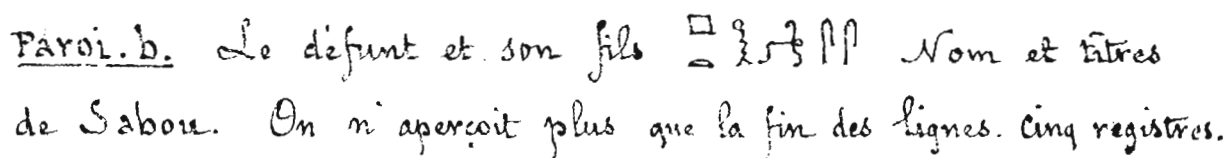 Paroi. b. Le défunt et son fils 𓊪𓏏𓎛𓀻𓋴𓋴 Nom et titres
de Sabou. On n'aperçoit plus que la fin des lignes. Cinq registres.